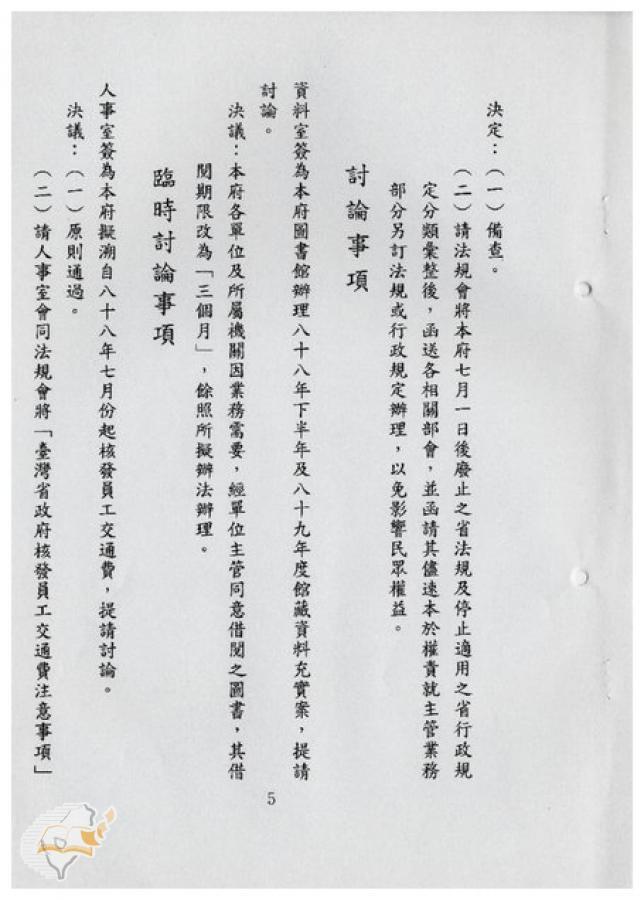 決定：（一）備查。
（二）請法規會將本府七月一日後廢止之省法規及停止適用之省行政規
定分類彙整後，函送各相關部會，並函請其儘速本於權責就主管業務
部分另訂法規或行政規定辦理，以免影響民眾權益。
討論事項
資料室簽為本府圖書館辦理八十八年下半年及八十九年度館藏資料充實案，提請
討論。
決議：本府各單位及所屬機關因業務需要，經單位主管同意借閱之圖書，其借
閱期限改為「三個月」，餘照所擬辦法辦理。
臨時討論事項
人事室簽為本府擬溯自八十八年七月份起核發員工交通費，提請討論。
決議：（一）原則通過。
（二）請人事室會同法規會將「臺灣省政府核發員工交通費注意事項」
5